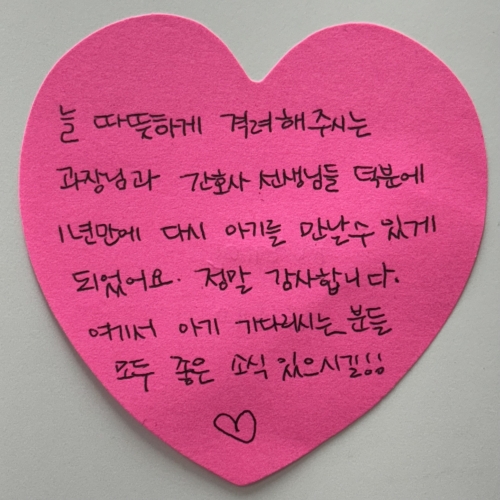 늘 따뜻하게 격려해주시는
과장님과 간호사 선생님들 덕분에
1년만에 다시 아기를 만날수 있게
되었어요. 정말 감사합니다.
여기서 아기 기다리시는 분들
모두 좋은 소식 있으시길!!
♡